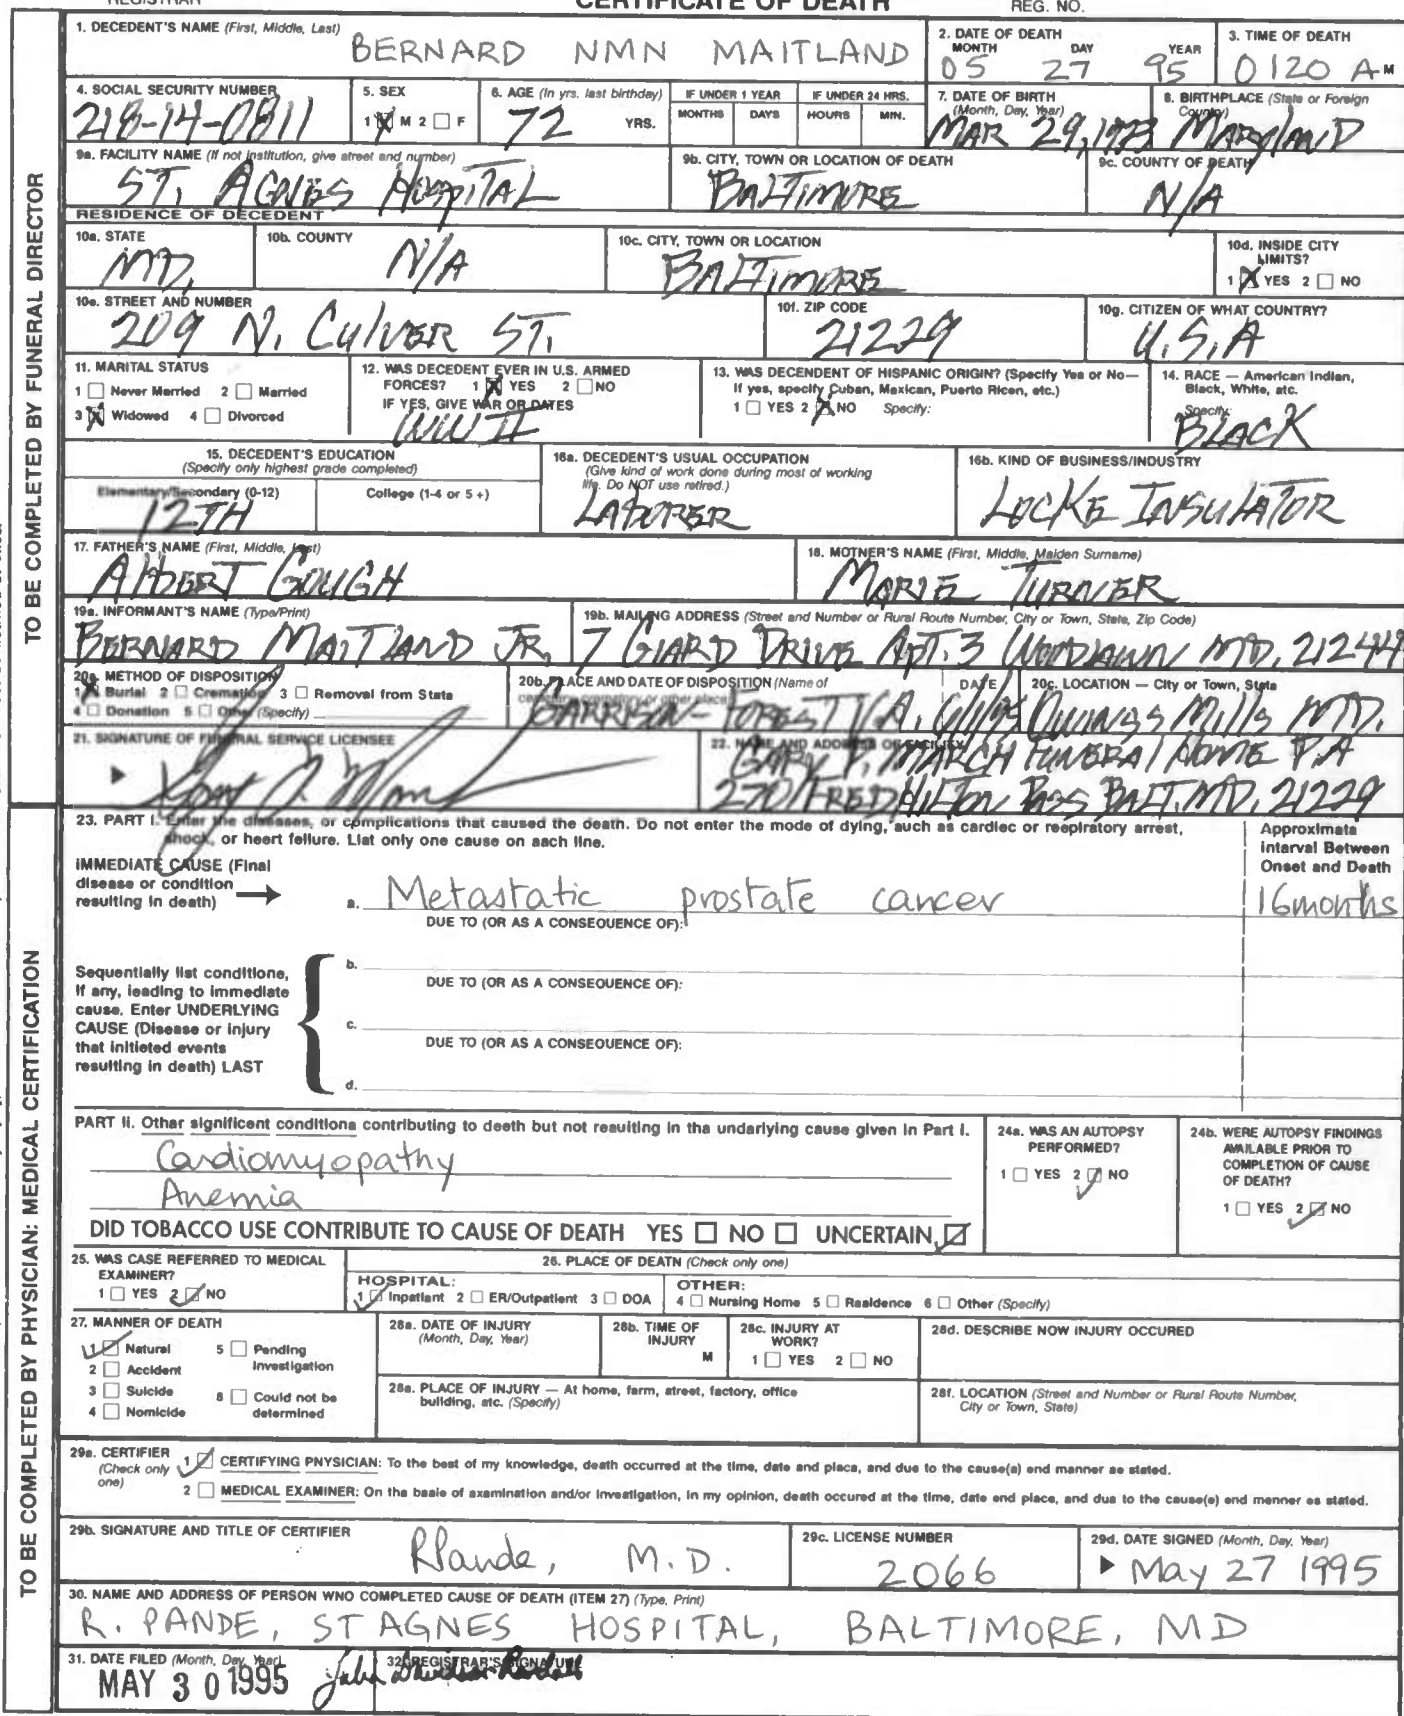 REGISTRAR CERTIFICATE OF DEATH REG. NO.
TO BE COMPLETED BY FUNERAL DIRECTOR
1. DECEDENT'S NAME (First, Middle, Last) BERNARD NMN MAITLAND
2. DATE OF DEATH MONTH DAY YEAR 05 27 95
3. TIME OF DEATH 0120 A M
4. SOCIAL SECURITY NUMBER 218-14-0811
5. SEX 1 M 2 F
6. AGE (In yrs. last birthday) 72 YRS.
IF UNDER 1 YEAR MONTHS DAYS
IF UNDER 24 HRS. HOURS MIN.
7. DATE OF BIRTH (Month, Day, Year) MAR 29, 1923
8. BIRTHPLACE (State or Foreign Country) MARYLAND
9a. FACILITY NAME (If not institution, give street and number) ST. AGNES HOSPITAL
9b. CITY, TOWN OR LOCATION OF DEATH BALTIMORE
9c. COUNTY OF DEATH N/A
RESIDENCE OF DECEDENT
10a. STATE MD.
10b. COUNTY N/A
10c. CITY, TOWN OR LOCATION BALTIMORE
10d. INSIDE CITY LIMITS? 1 YES 2 NO
10e. STREET AND NUMBER 209 N. CULVER ST.
10f. ZIP CODE 21229
10g. CITIZEN OF WHAT COUNTRY? U.S.A
11. MARITAL STATUS
1 Never Married 2 Married
3 Widowed 4 Divorced
12. WAS DECEDENT EVER IN U.S. ARMED FORCES? 1 YES 2 NO
IF YES, GIVE WAR OR DATES WW II
13. WAS DECENDENT OF HISPANIC ORIGIN? (Specify Yes or No—
If yes, specify Cuban, Mexican, Puerto Rican, etc.)
1 YES 2 NO Specify:
14. RACE — American Indian, Black, White, etc.
Specify: BLACK
15. DECEDENT'S EDUCATION
(Specify only highest grade completed)
Elementary/Secondary (0-12) 12TH
College (1-4 or 5+)
16a. DECEDENT'S USUAL OCCUPATION
(Give kind of work done during most of working life. Do NOT use retired.)
LABORER
16b. KIND OF BUSINESS/INDUSTRY LOCKE INSULATOR
17. FATHER'S NAME (First, Middle, Last) ALBERT GOUGH
18. MOTNER'S NAME (First, Middle, Maiden Surname) MARIE TURNER
19a. INFORMANT'S NAME (Type/Print) BERNARD MAITLAND JR.
19b. MAILING ADDRESS (Street and Number or Rural Route Number, City or Town, State, Zip Code)
7 GIARD DRIVE APT. 3 WOODLAWN MD. 21244
20a. METHOD OF DISPOSITION
1 Burial 2 Cremation 3 Removal from State
4 Donation 5 Other (Specify)
20b. PLACE AND DATE OF DISPOSITION (Name of cemetery, crematory or other place) DATE
GARRISON-FOREST VA.
20c. LOCATION — City or Town, State OWINGS MILLS MD.
21. SIGNATURE OF FUNERAL SERVICE LICENSEE
22. NAME AND ADDRESS OF FACILITY
GARY P. MARCH FUNERAL HOME P.A
270 FREDHILTON PASS BALT. MD. 21229
TO BE COMPLETED BY PHYSICIAN: MEDICAL CERTIFICATION
23. PART I. Enter the diseases, or complications that caused the death. Do not enter the mode of dying, such as cardiac or respiratory arrest,
shock, or heart failure. List only one cause on each line.
Approximate Interval Between Onset and Death
IMMEDIATE CAUSE (Final disease or condition resulting in death) →
a. Metastatic prostate cancer 16 months
DUE TO (OR AS A CONSEQUENCE OF):
Sequentially list conditions, if any, leading to immediate cause. Enter UNDERLYING CAUSE (Disease or injury that initiated events resulting in death) LAST
b.
DUE TO (OR AS A CONSEQUENCE OF):
c.
DUE TO (OR AS A CONSEQUENCE OF):
d.
PART II. Other significant conditions contributing to death but not resulting in the underlying cause given in Part I.
Cardiomyopathy
Anemia
24a. WAS AN AUTOPSY PERFORMED?
1 YES 2 NO
24b. WERE AUTOPSY FINDINGS AVAILABLE PRIOR TO COMPLETION OF CAUSE OF DEATH?
1 YES 2 NO
DID TOBACCO USE CONTRIBUTE TO CAUSE OF DEATH YES NO UNCERTAIN
25. WAS CASE REFERRED TO MEDICAL EXAMINER?
1 YES 2 NO
26. PLACE OF DEATH (Check only one)
HOSPITAL:
1 Inpatient 2 ER/Outpatient 3 DOA
OTHER:
4 Nursing Home 5 Residence 6 Other (Specify)
27. MANNER OF DEATH
1 Natural 5 Pending Investigation
2 Accident
3 Suicide 8 Could not be determined
4 Nomicide
28a. DATE OF INJURY (Month, Day, Year)
28b. TIME OF INJURY M
28c. INJURY AT WORK? 1 YES 2 NO
28d. DESCRIBE NOW INJURY OCCURED
28a. PLACE OF INJURY — At home, farm, street, factory, office building, etc. (Specify)
28f. LOCATION (Street and Number or Rural Route Number, City or Town, State)
29a. CERTIFIER (Check only one)
1 CERTIFYING PNYSICIAN: To the best of my knowledge, death occurred at the time, date and place, and due to the cause(s) and manner as stated.
2 MEDICAL EXAMINER: On the basis of examination and/or investigation, in my opinion, death occured at the time, date and place, and due to the cause(s) and manner as stated.
29b. SIGNATURE AND TITLE OF CERTIFIER RPande, M.D.
29c. LICENSE NUMBER 2066
29d. DATE SIGNED (Month, Day, Year) May 27 1995
30. NAME AND ADDRESS OF PERSON WNO COMPLETED CAUSE OF DEATH (ITEM 27) (Type, Print)
R. PANDE, ST AGNES HOSPITAL, BALTIMORE, MD
31. DATE FILED (Month, Day, Year) MAY 30 1995
32. REGISTRAR'S SIGNATURE